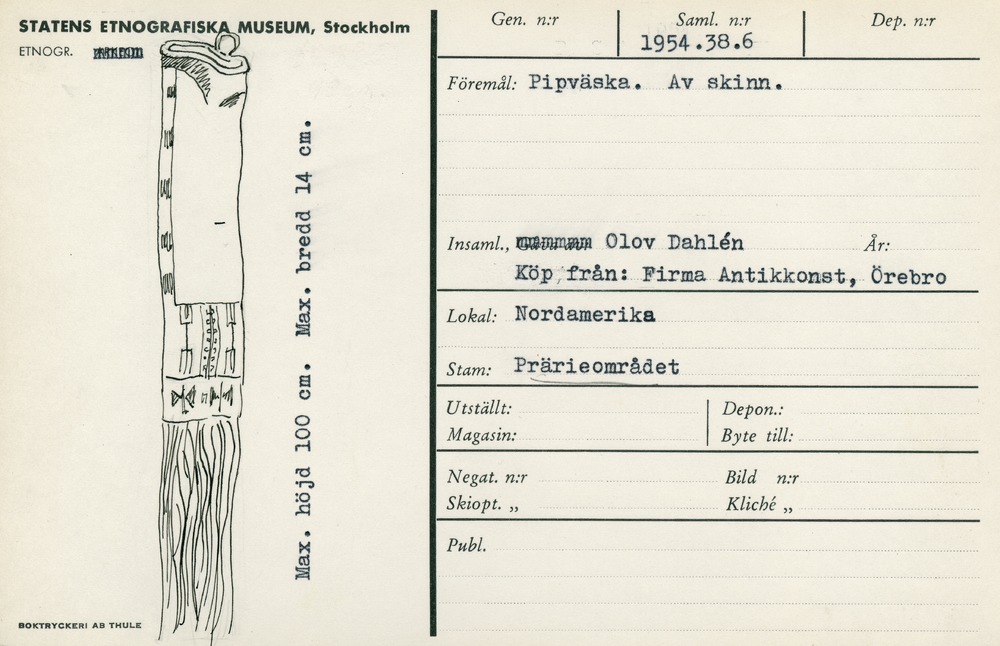 STATENS ETNOGRAFISKA MUSEUM, Stockholm
ETNOGR.
Max. höjd 100 cm.  Max. bredd 14 cm.
BOKTRYCKERI AB THULE
Gen. n:r
Saml. n:r
Dep. n:r
1954.38.6
Föremål: Pipväska.  Av skinn.
Insaml., Olov Dahlén År:
Köp från: Firma Antikkonst, Örebro
Lokal: Nordamerika
Stam: Prärieområdet
Utställt: Depon.:
Magasin: Byte till:
Negat. n:r Bild n:r
Skiopt. „ Kliché „
Publ.